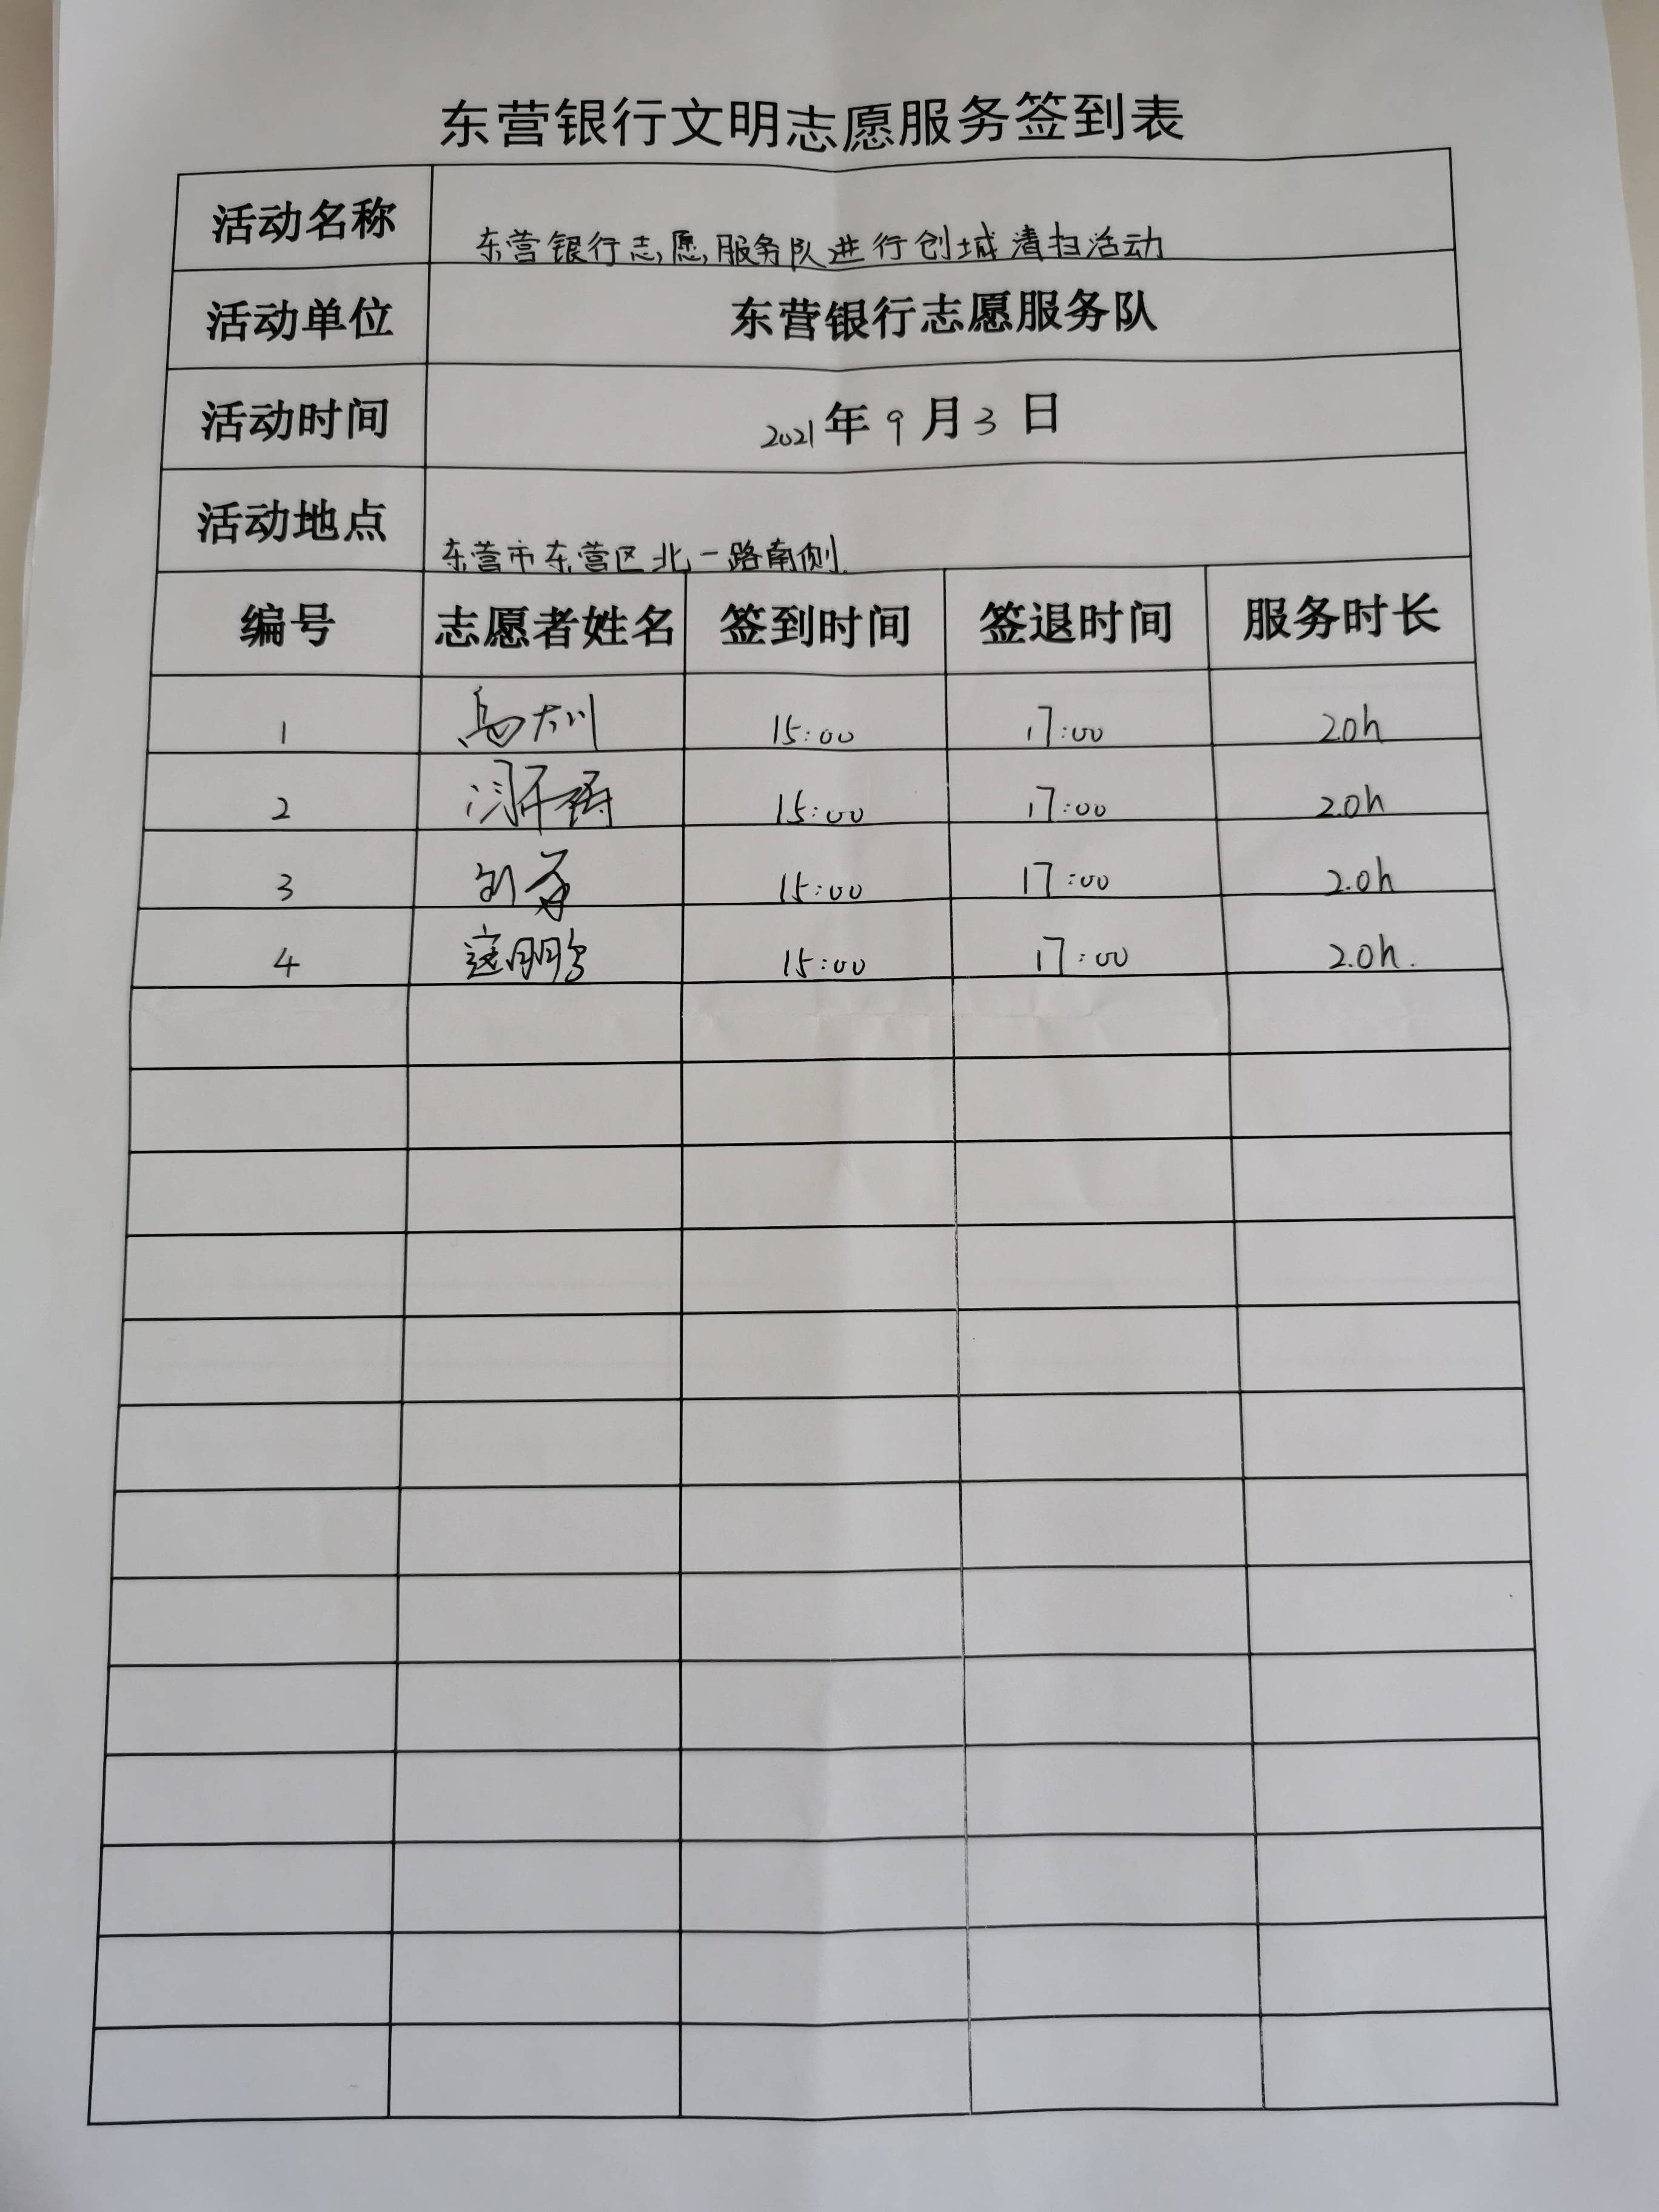 东营银行文明志愿服务签到表
活动名称 东营银行志愿服务队进行创城清扫活动
活动单位 东营银行志愿服务队
活动时间 2021年9月3日
活动地点 东营市东营区北一路南侧
编号 志愿者姓名 签到时间 签退时间 服务时长
1 15:00 17:00 2.0h
2 15:00 17:00 2.0h
3 15:00 17:00 2.0h
4 15:00 17:00 2.0h.